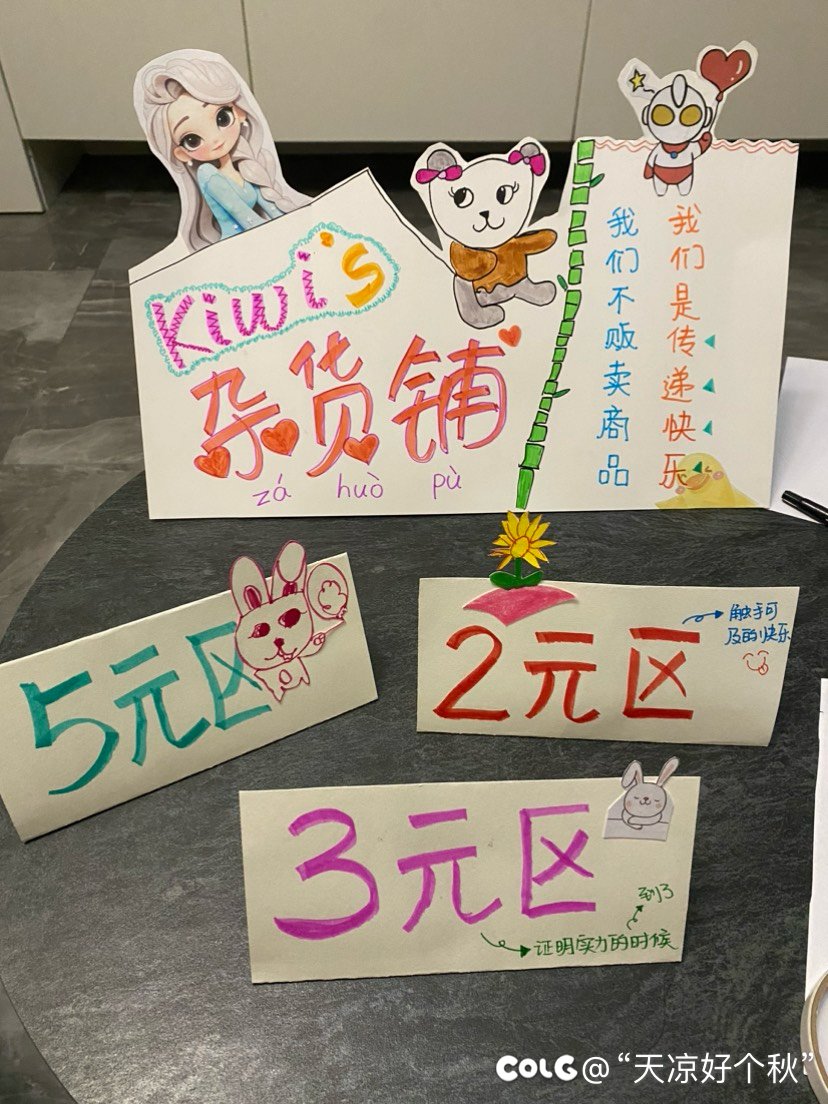 Kiwi's
杂货铺
zá huò pù
我们不贩卖商品
我们是传递快乐
5元区
2元区
触手可
及的快乐
3元区
证明实力的时候
到了
COLG@“天凉好个秋”